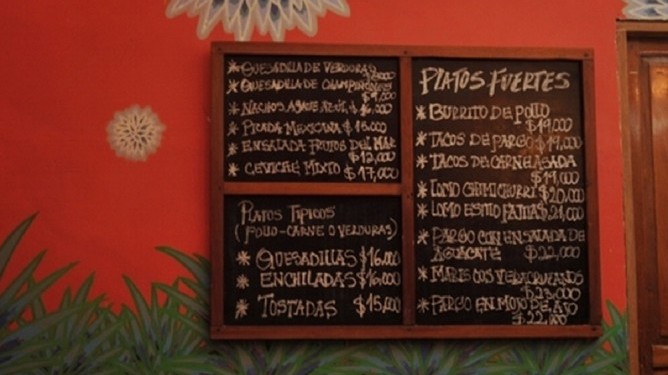 * QUESADILLA DE VERDURAS
* QUESADILLA DE CHAMPIÑONES
* NACHOS AGAVE AZUL $ 6,000
* PICADA MEXICANA $ 16.000
* ENSALADA FRUTOS DEL MAR
$ 12,000
* CEVICHE MIXTO $ 17,000
PLATOS TIPICOS
(POLLO - CARNE O VERDURAS)
* QUESADILLAS $16,000
* ENCHILADAS $16,000
* TOSTADAS $15,000
PLATOS FUERTES
* BURRITO DE POLLO
$19,000
* TACOS DE PARGO $19,000
* TACOS DE CARNE ASADA
$19,000
* LOMO CHIMICHURRI $20,000
* LOMO ESTILO FAJITAS $21,000
* PARGO CON ENSALADA DE
AGUACATE $22,000
* MARISCOS VERACRUZANOS
$23,000
* PARGO EN MOJO DE AJO
$22,000